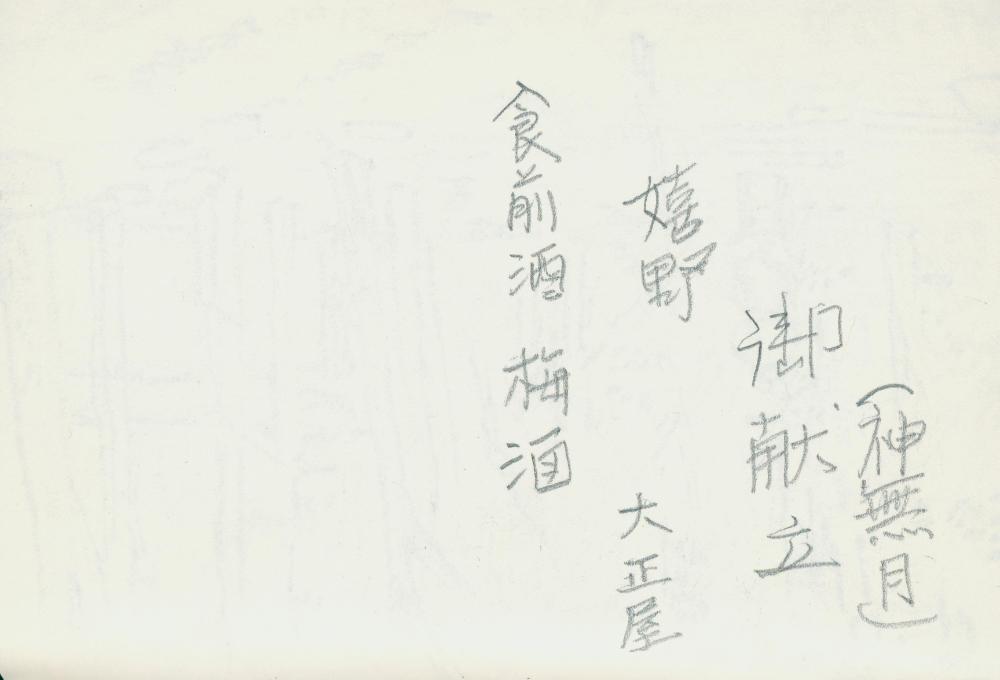 (神無月)
御献立
嬉野 大正屋
食前酒 梅酒